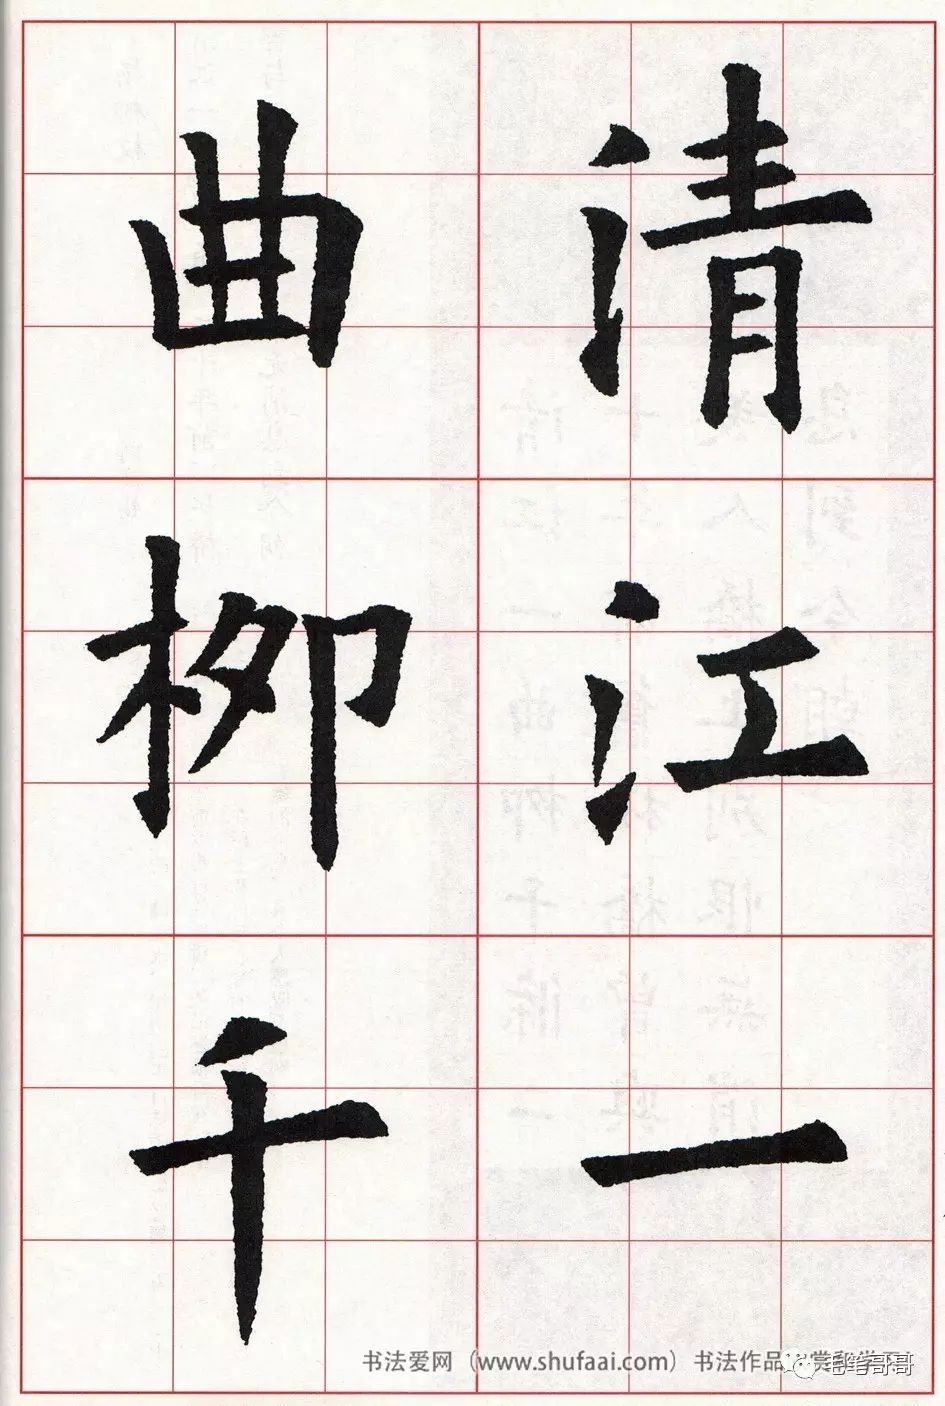 清江一
曲柳千
书法爱网（www.shufaai.com）书法作品
毛笔哥哥